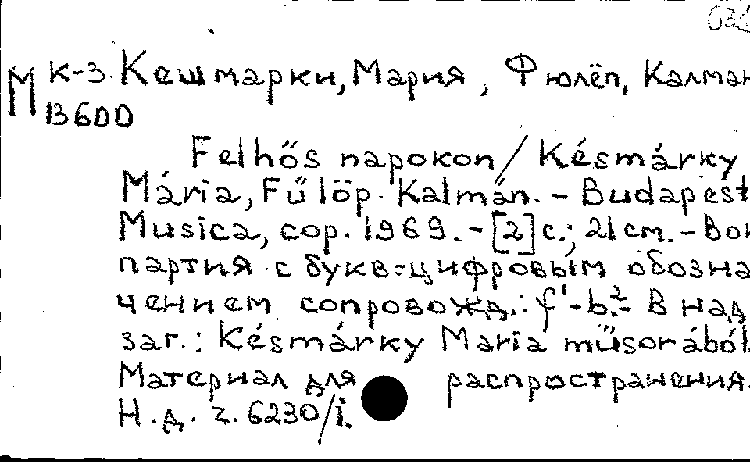 К-3 Кешмарки, Мария, Фюлёп, Калман
М В600
Felhős napokon / Késmárky
Mária, Fűlöp Kálmán. – Budapest
Musica, cop. 1969. – [2] с.; 21 см. – Вок
партия с букв-цифровым обозна
чением сопровожд.: f¹-b². – В над
заг.: Késmárky Maria műsorából
Материал для распространения.
Н.д. z. 6230/I.